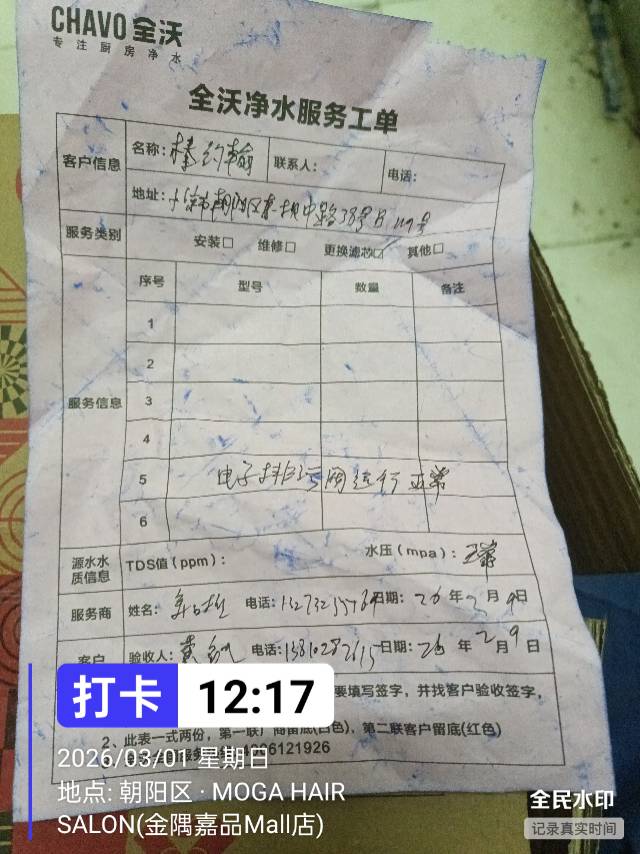 CHAVO 全沃
专注厨房净水
全沃净水服务工单
客户信息
名称: 翰
联系人:
电话:
地址: 市朝阳区 中路38号B 119号
服务类别
安装□ 维修□ 更换滤芯☑ 其他□
服务信息
序号 型号 数量 备注
1
2
3
4
5 电子排 阀运行正常
6
源水水质信息
TDS值(ppm):
水压(mpa): 正常
服务商
姓名:
电话:
日期: 26 年 2 月 9 日
客户
验收人: 黄
电话:
日期: 26 年 2 月 9 日
要填写签字,并找客户验收签字,
2、此表一式两份,第一联厂商留底(白色),第二联客户留底(红色)
4006121926
打卡 12:17
2026/03/01 星期日
地点: 朝阳区 · MOGA HAIR
SALON(金隅嘉品Mall店)
全民水印
记录真实时间